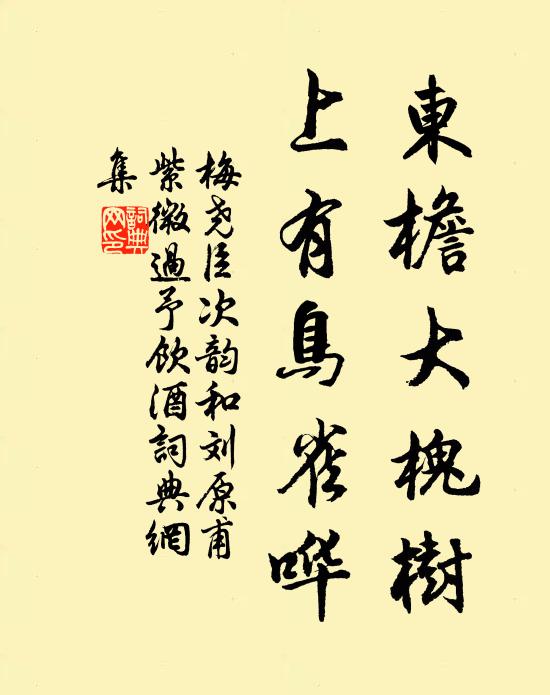 東檐大槐樹
上有鳥雀哗
梅尧臣次韵和刘原甫
紫微過予飲酒詞典網
集
詞典
网印